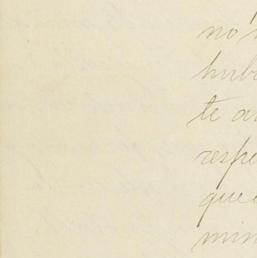 no
hub
te a
respe
que
min